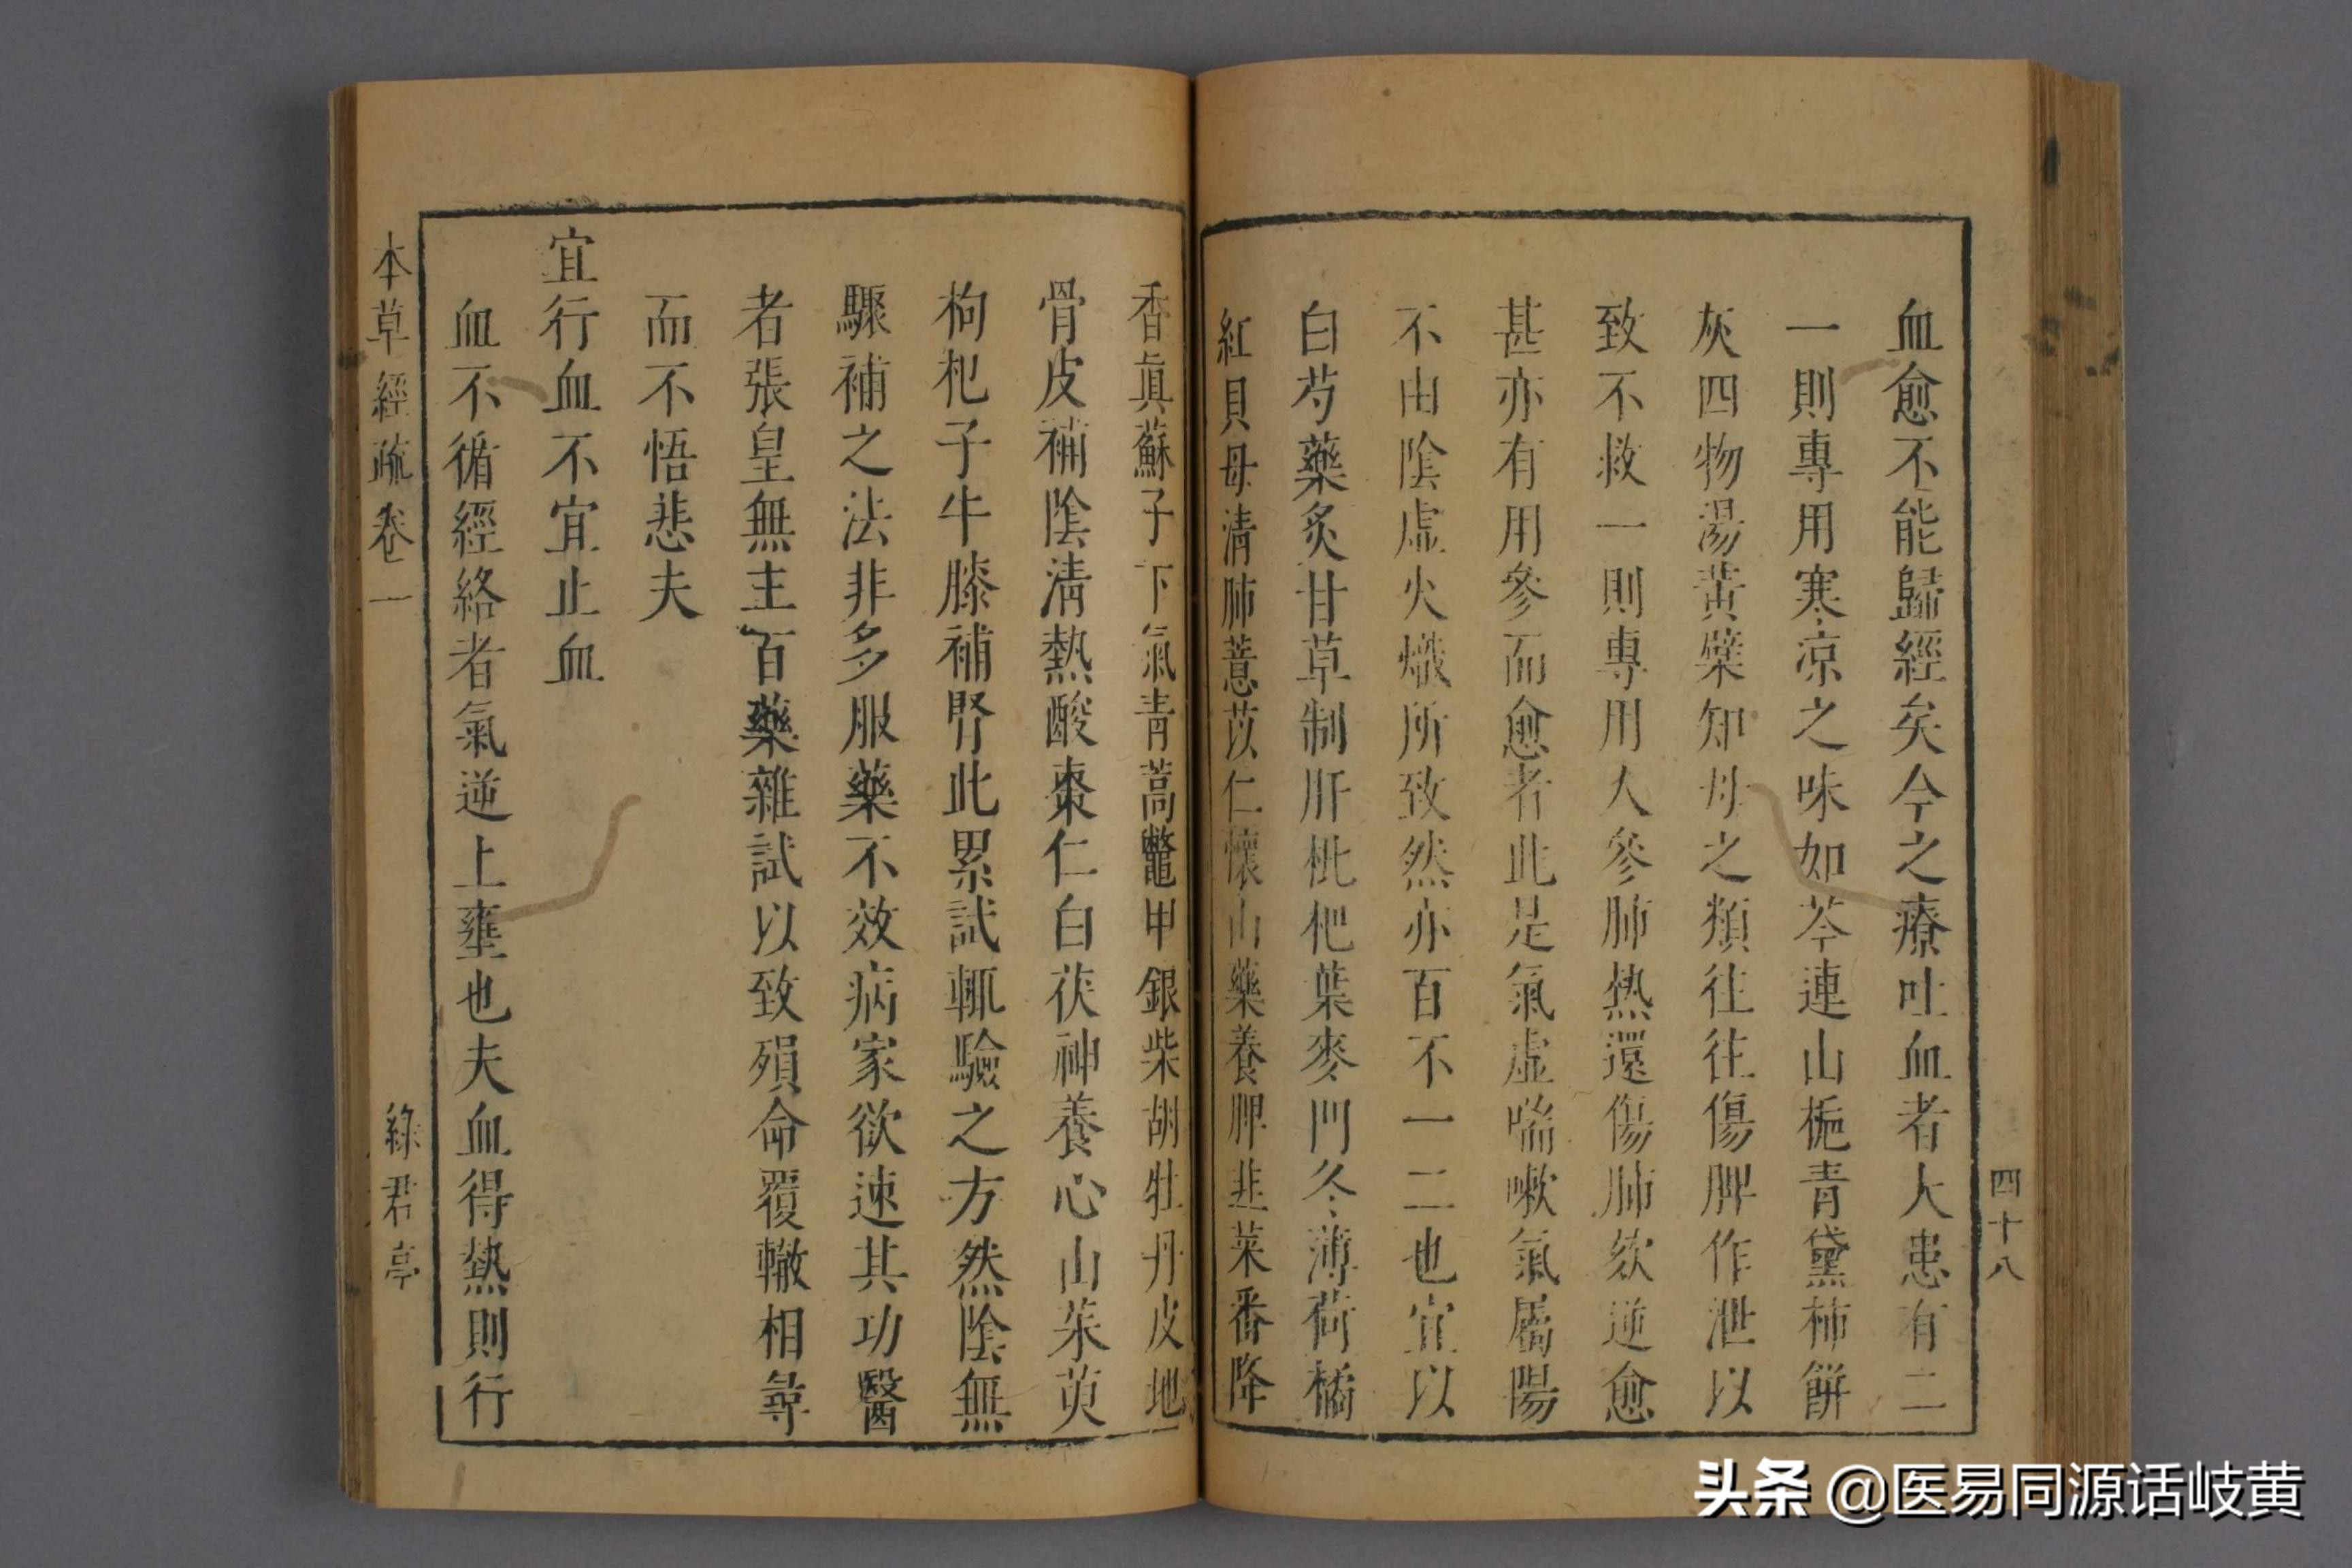 血愈不能歸經矣今之療吐血者大患有二
一則專用寒凉之味如芩連山梔青黛柿餅
灰四物湯黃蘗知母之類往往傷脾作泄以
致不救一則專用人參肺熱還傷肺欬逆愈
甚亦有用參而愈者此是氣虛喘嗽氣屬陽
不由陰虛火熾所致然亦百不一二也宜以
白芍藥炙甘草制肝枇杷葉麥門冬薄荷橘
紅貝母清肺薏苡仁懷山藥養脾韭菜番降
香眞蘇子下氣青蒿鼈甲銀柴胡牡丹皮地
骨皮補陰清熱酸棗仁白茯神養心山茱萸
枸杞子牛膝補腎此累試輒驗之方然陰無
驟補之法非多服藥不效病家欲速其功醫
者張皇無主百藥雜試以致殞命覆轍相尋
而不悟悲夫
宜行血不宜止血
血不循經絡者氣逆上壅也夫血得熱則行
本草經疏卷一
綠君亭
四十八
头条 @医易同源话岐黄